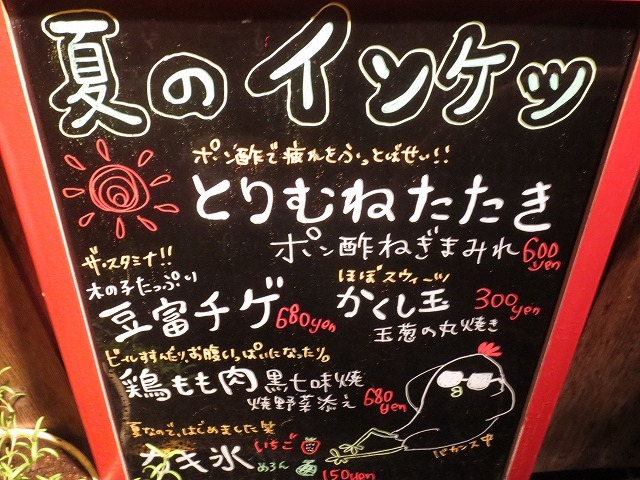 夏のインケツ
ポン酢で疲れをふっとばせい!!
とりむねたたき
ポン酢ねぎまみれ 600yen
ザ・スタミナ!!
木の子たっぷり
豆富チゲ 680yen
ほぼスウィーツ
かくし玉 300yen
玉葱の丸焼き
ビールすすんだり、お腹いっぱいになったり。
鶏もも肉 黒七味焼
焼野菜添え 680yen
夏なので、はじめました笑
カキ氷 いちご
めろん 150yen
バカンス中